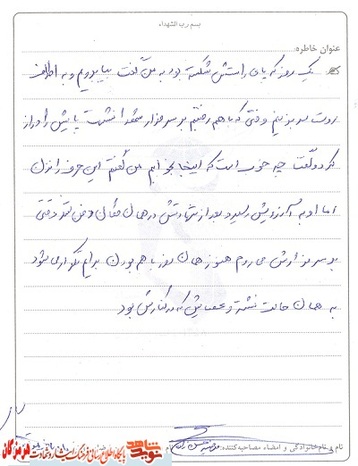 بسم رب الشهداء
عنوان خاطره:
یک روز که پای راستش شکسته بود به من گفت بیا برویم و به اطراف
روستا سر بزنیم وقتی که با هم رفتیم بر سر مزار شهدا نشست پایش را دراز
کرد و گفت چه خوب است که اینجا بخوابم من گفتم این حرف را نزن
اما او به آرزویش رسید بعد از شهادتش در همان مکان دفن شد وقتی
بر سر مزارش می روم هنوز همان روز با هم بودن برایم تکرار می شود
به همان حالت نشسته و عصایش که در کنارش بود
نام و نام خانوادگی و امضاء مصاحبه کننده:
نوید شاهد
پایگاه اطلاع رسانی فرهنگ ایثار و شهادت هرمزگان